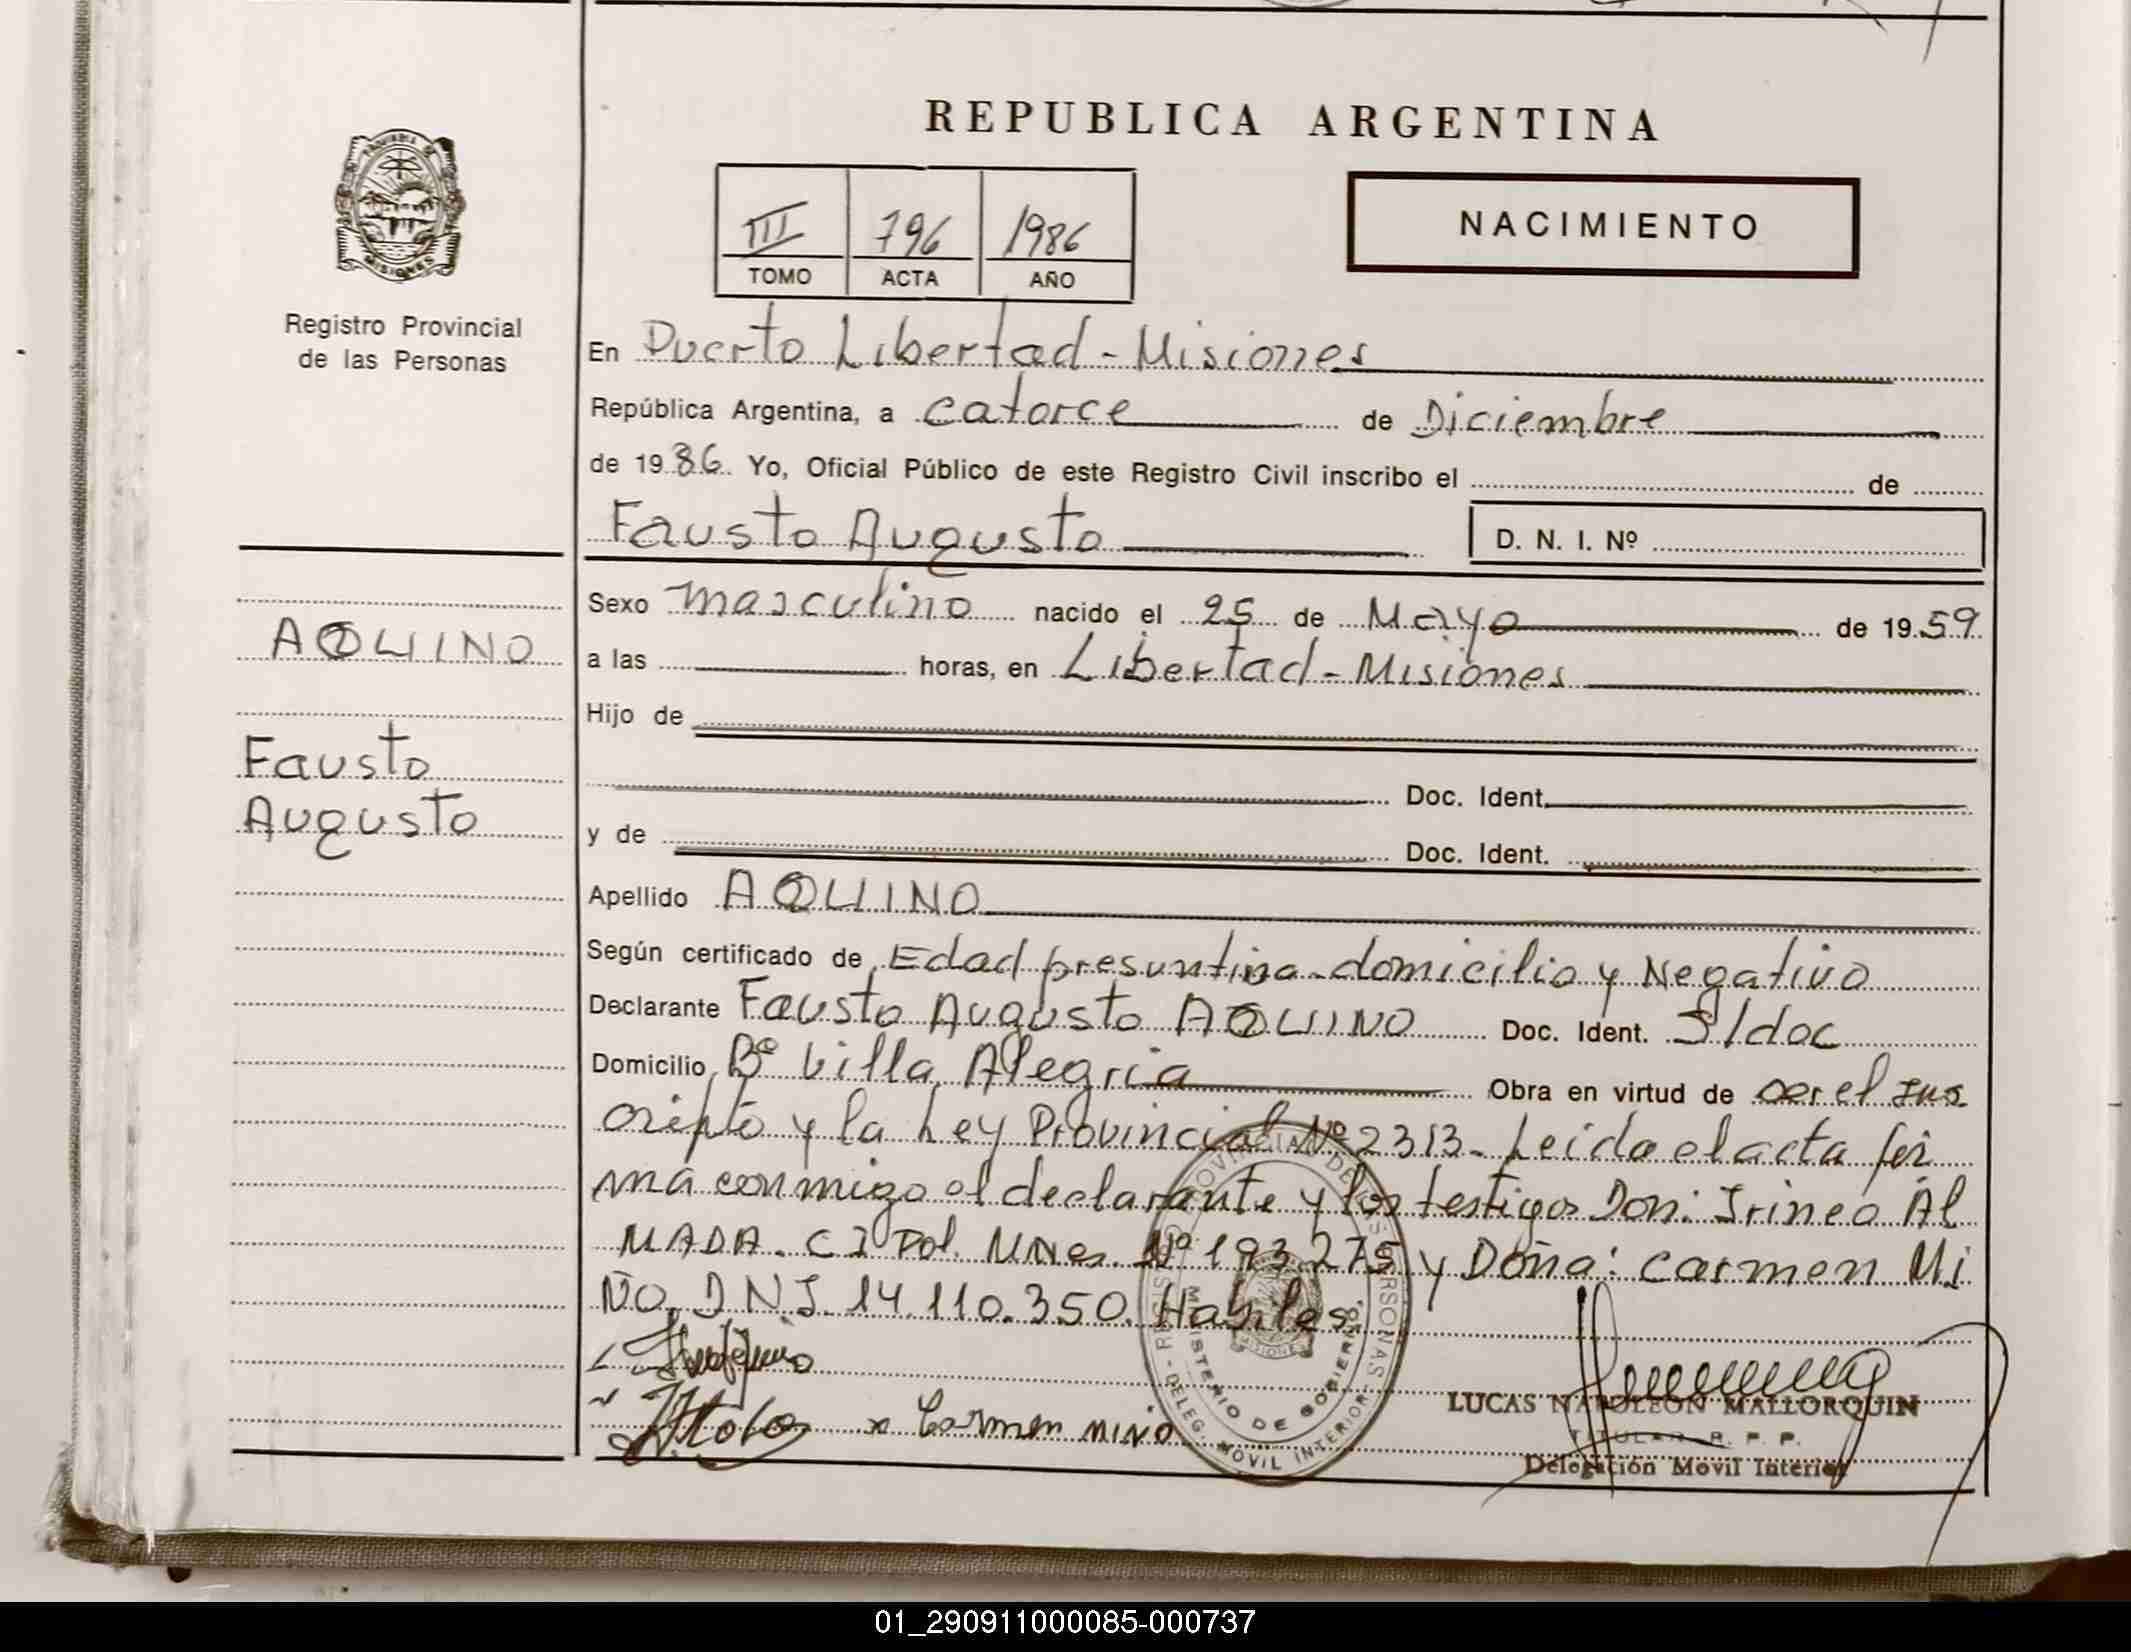 REPUBLICA ARGENTINA
III 796 1986
TOMO ACTA AÑO
NACIMIENTO
Registro Provincial
de las Personas
AQUINO
Fausto
Augusto
En Puerto Libertad - Misiones
República Argentina, a catorce de Diciembre
de 1986. Yo, Oficial Público de este Registro Civil inscribo el de
Fausto Augusto D. N. I. Nº
Sexo masculino nacido el 25 de Mayo de 1959
a las horas, en Libertad - Misiones
Hijo de
Doc. Ident.
y de Doc. Ident.
Apellido AQUINO
Según certificado de Edad presuntiva - domicilio y Negativo
Declarante Fausto Augusto AQUINO Doc. Ident. S/doc
Domicilio Bº Villa Alegria Obra en virtud de ser el sus
cripto y la Ley Provincial Nº 2313. Leida el acta fir
ma conmigo el declarante y los testigos Don: Irineo Al
MADA. CI Pol. MNes. Nº 193.275 y Doña: Carmen Mi
ÑO, DNI. 14.110.350. Habiles.
x Carmen Miño
MINISTERIO DE GOBIERNO
DELEG. MOVIL INTERIOR
MISIONES
LUCAS NAPOLEON MALLORQUIN
TITULAR R. P. P.
Delegación Movil Interior
01_290911000085-000737